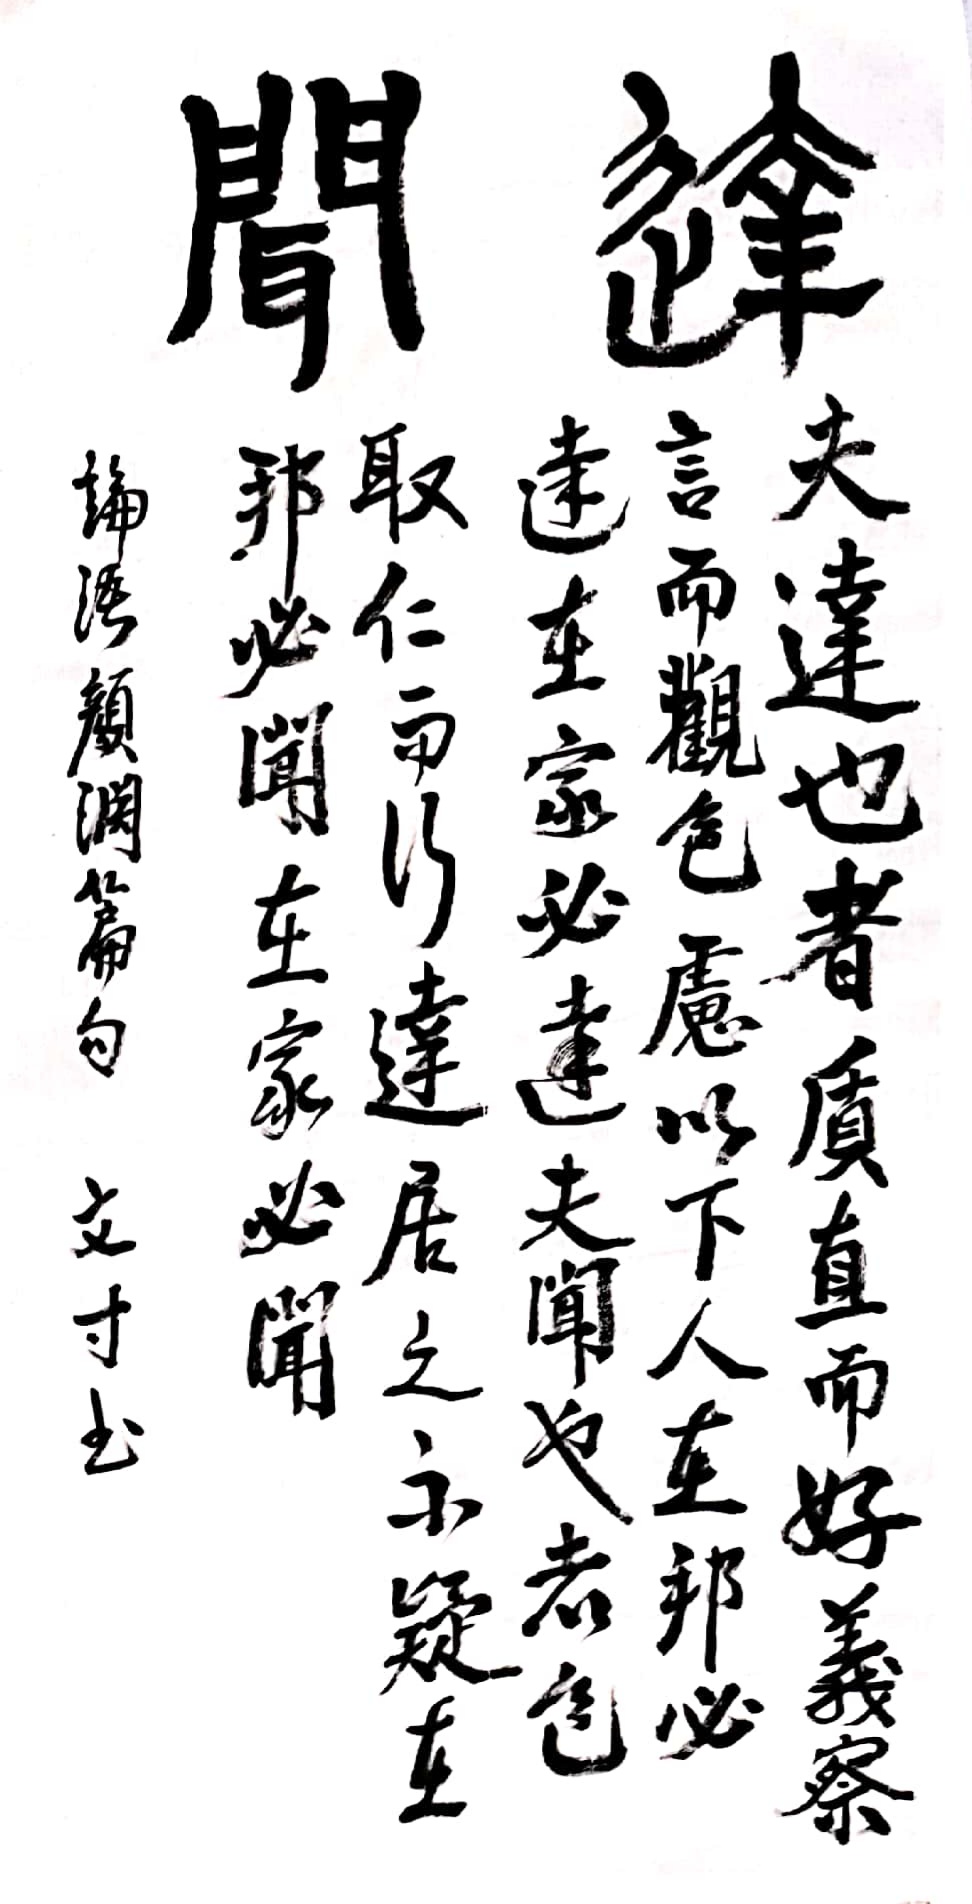 達聞
夫達也者质直而好義察
言而觀色慮以下人在邦必
達在家必達夫聞也者色
取仁而行達居之不疑在
邦必聞在家必聞
論语顏渊篇句 文寸书